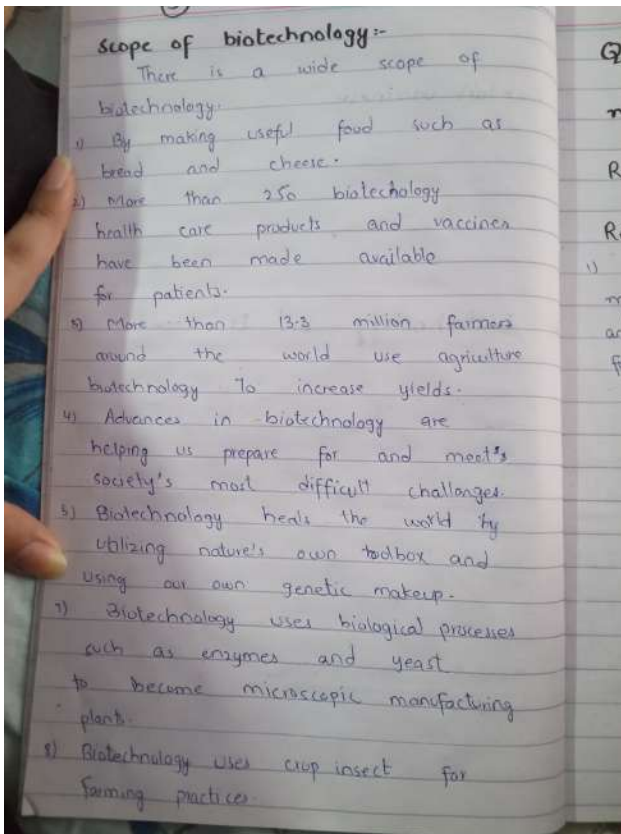 Scope of biotechnology:-
There is a wide scope of
biotechnology.
1) By making useful foud such as
bread and cheese.
2) More than 250 biotechology
health care products and vaccines
have been made available
for patients.
3) More than 13.3 million farmers
around the world use agriculture
biotechnology To increase yields.
4) Advances in biotechnology are
helping us prepare for and meet's
society's most difficult challanges.
5) Biotechnology heals the world by
utilizing nature's own toolbox and
using our own genetic makeup.
7) Biotechnology uses biological processes
such as enzymes and yeast
to become microscopic manufacturing
plants.
8) Biotechnology uses crop insect for
farming practices.
Q
R
R
1)